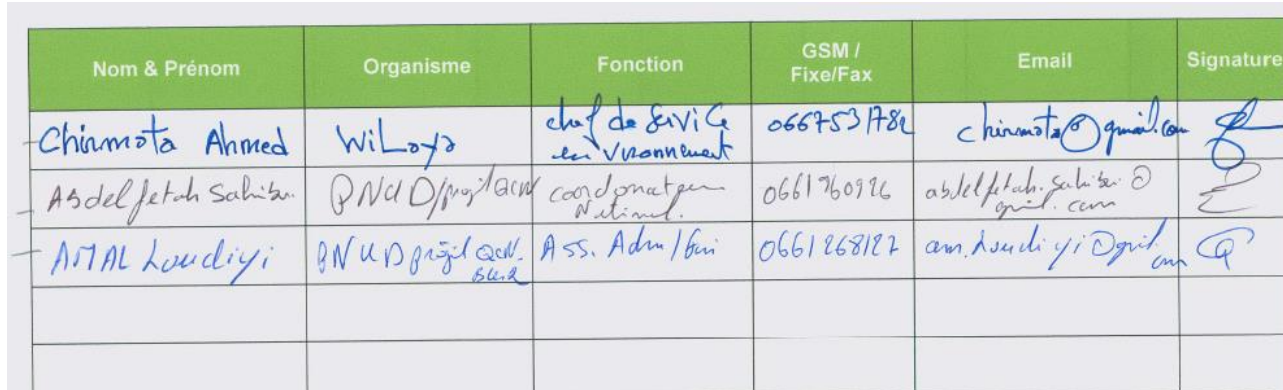 Nom & Prénom Organisme Fonction GSM / Fixe/Fax Email Signature
Chirmata Ahmed Wilaya chef de service environnement 0667531782 chirmata@gmail.com
Abdelfetah Sahibi PNUD/projet QCN coordonateur National. 0661760926 abdelfetah.sahibi@gmail.com
AMAL Loudiyi PNUD projet QCN- Ass. Adm/fin 0661268127 am.loudiyi@gmail.com